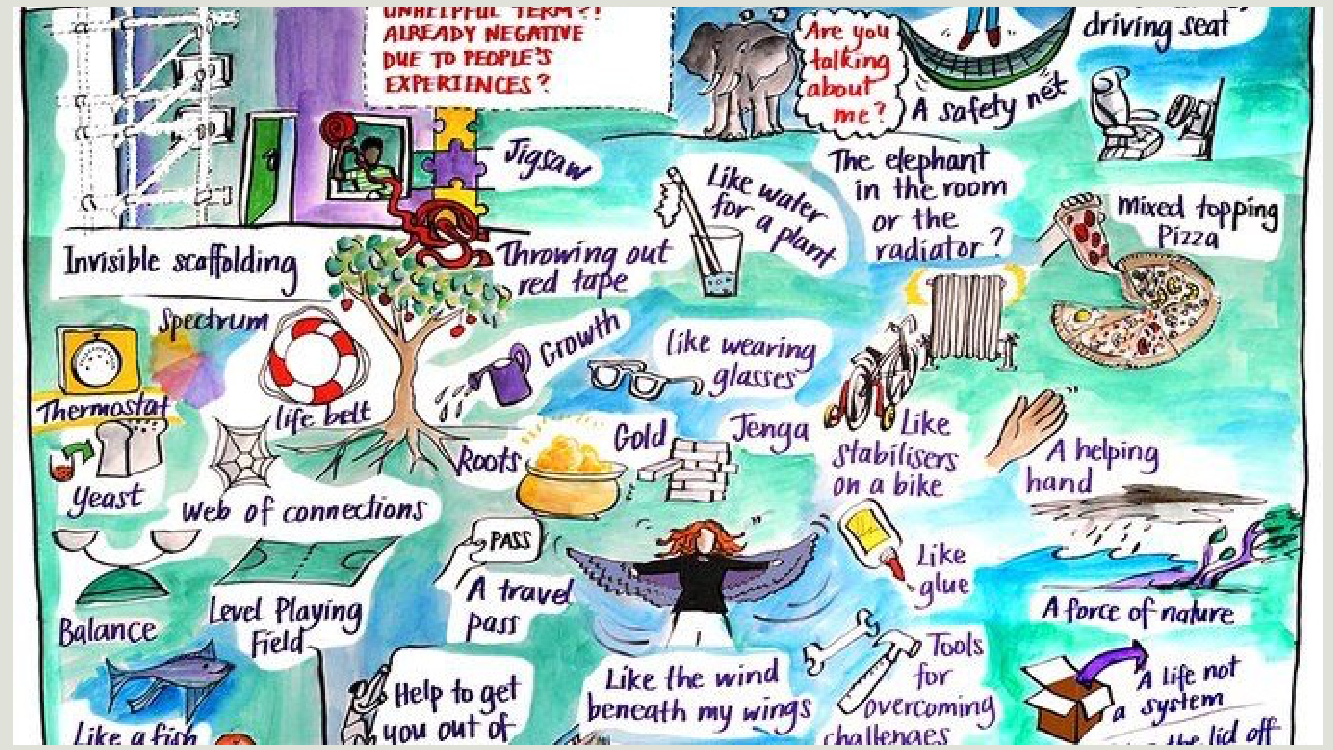 UNHELPFUL TERM?!
ALREADY NEGATIVE
DUE TO PEOPLE'S
EXPERIENCES?
Are you
talking
about
me?
A safety net
driving seat
Jigsaw
Like water
for a plant
The elephant
in the room
or the
radiator?
Mixed topping
Pizza
Invisible scaffolding
Throwing out
red tape
Spectrum
Growth
like wearing
glasses
Thermostat
life belt
Roots
Gold
Jenga
Like
stabilisers
on a bike
A helping
hand
Yeast
Web of connections
PASS
A travel
pass
Like
glue
Balance
Level Playing
Field
A force of nature
Like the wind
beneath my wings
Tools
for
overcoming
challenges
A life not
a system
the lid off
Help to get
you out of
Like a fish